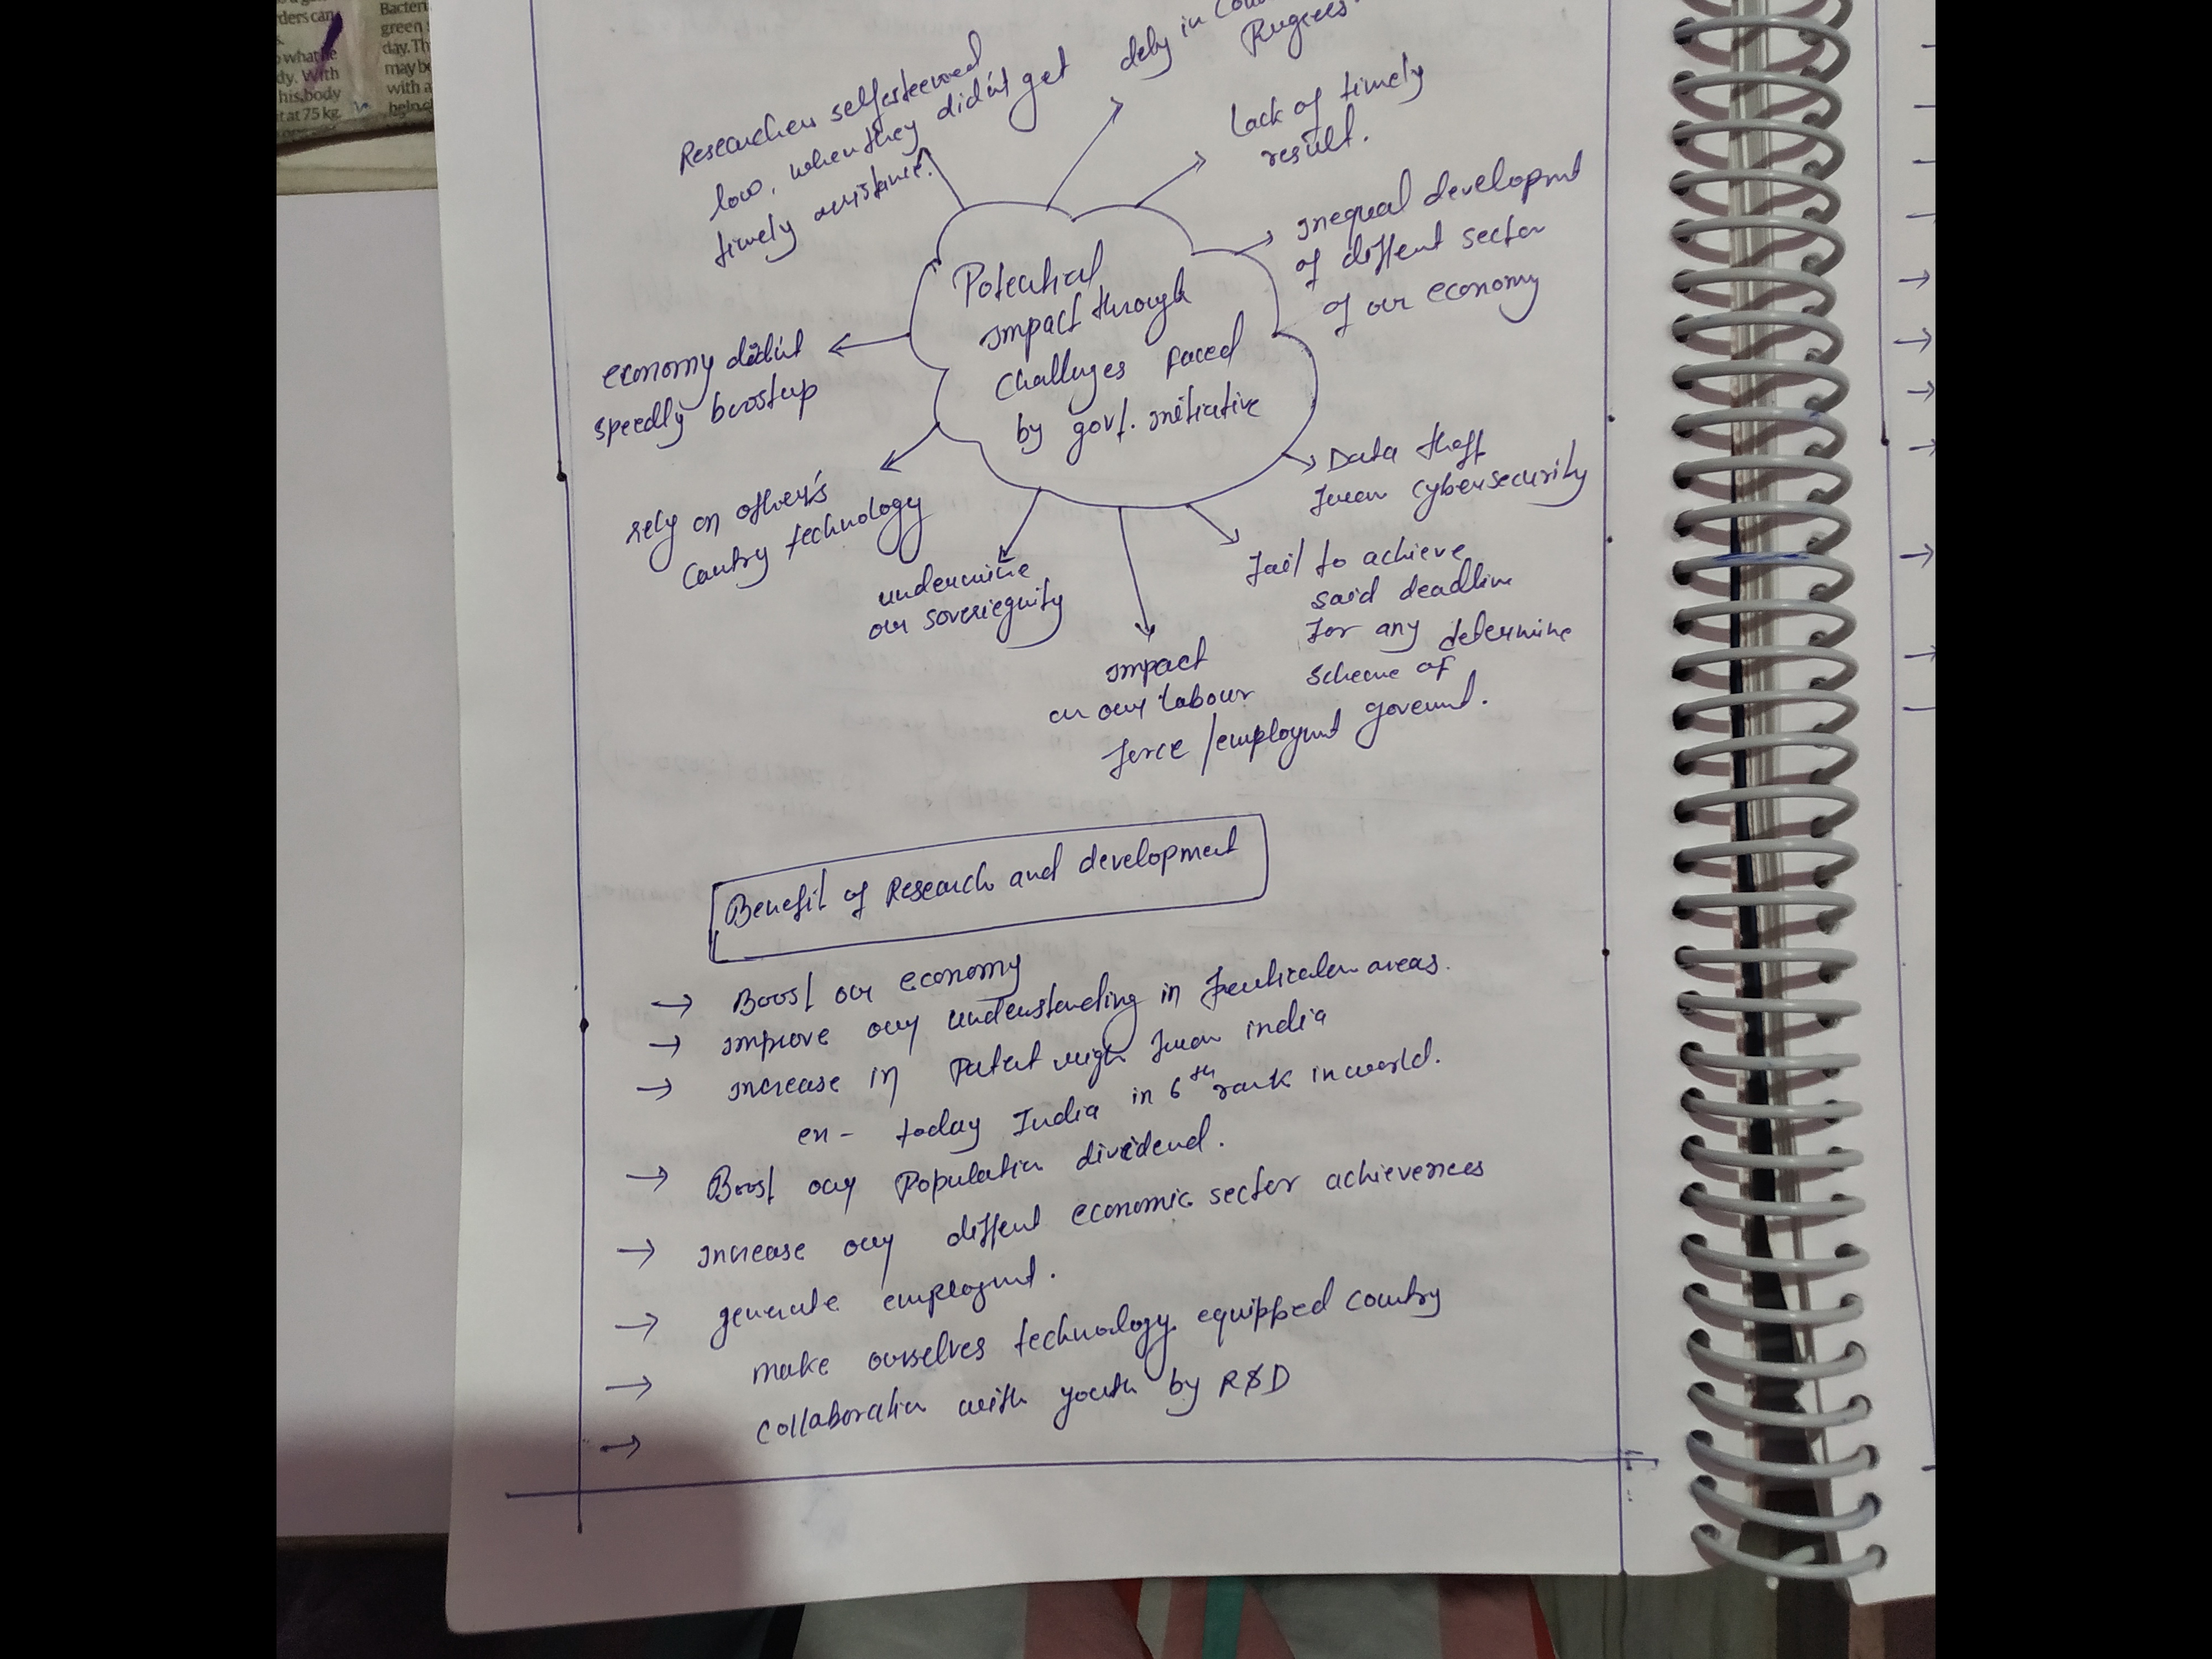 ders can
what he
dy. With
his body
at 75 kg.
Bacteri
green
day. Th
may be
with a
Researchers selfesteemed
low, when they didn't get
timely assistance.
dely in
lack of timely
result.
inequal developmnt
of diffent sector
of our economy
Potential
impact through
challenges faced
by govt. initiative
economy didn't
speedly boostup
rely on other's
Contry technology
undermine
our soveriegnity
impact
on our labour
force / employmnt
fail to achieve
said deadline
for any determine
scheme of
govermnt.
Data theft
from cybersecurity
Benefit of Research and development
→ Boost our economy
→ improve our understanding in particular areas.
→ increase in Patent right from india
ex - today India in 6th rank in world.
→ Boost our Population dividend.
→ increase our diffent economic sector achievences
→ generate employmnt.
→ make ourselves technology equipped country
→ collaboration with youth by R&D